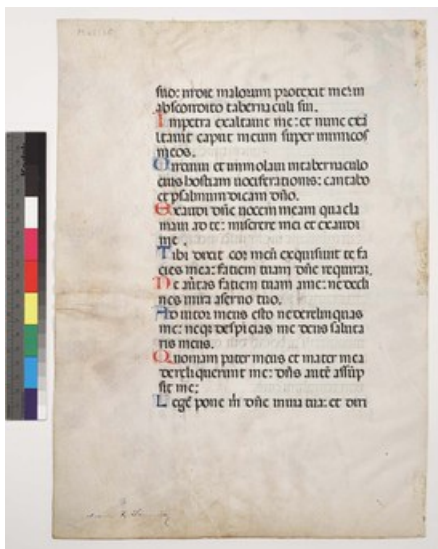 suo: in die malorum protexit me in
abscondito tabernaculi sui.
In petra exaltauit me: et nunc exa
ltauit caput meum super inimicos
meos.
Circuiui et immolaui in tabernaculo
eius hostiam uociferationis: cantabo
et psalmum dicam dño.
Exaudi dñe uocem meam qua cla
maui ad te: miserere mei et exaudi
me.
Tibi dixit cor meũ exquisiuit te fa
cies mea: faciem tuam dñe requirã.
Ne auertas faciem tuam a me: ne decli
nes in ira a seruo tuo.
Adiutor meus esto ne derelinquas
me: neqʒ despicias me deus saluta
ris meus.
Quoniam pater meus et mater mea
dereliquerunt me: dñs autẽ assũp
sit me:
Legẽ pone m̃ dñe in uia tua: et diri